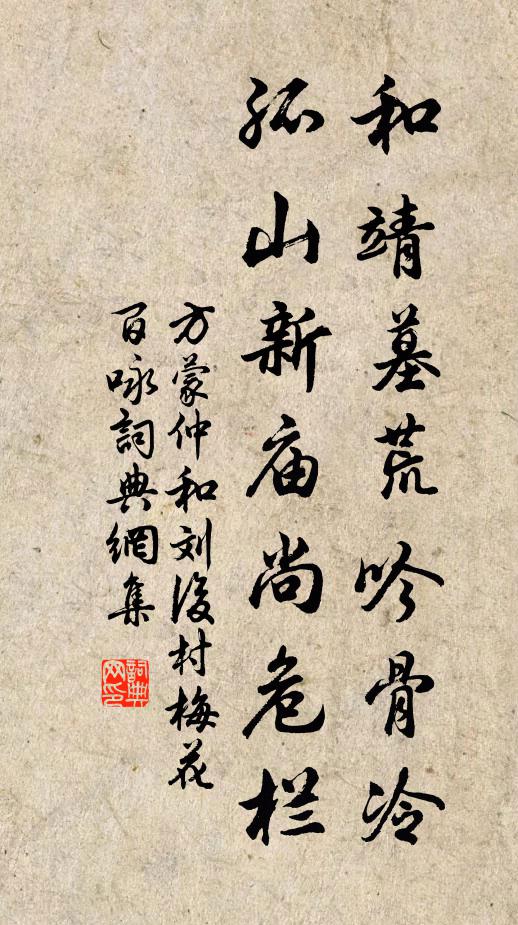 和靖墓荒吟骨冷
孤山新庙尚危栏
方蒙仲和刘後村梅花
百咏詞典網集
詞典网印